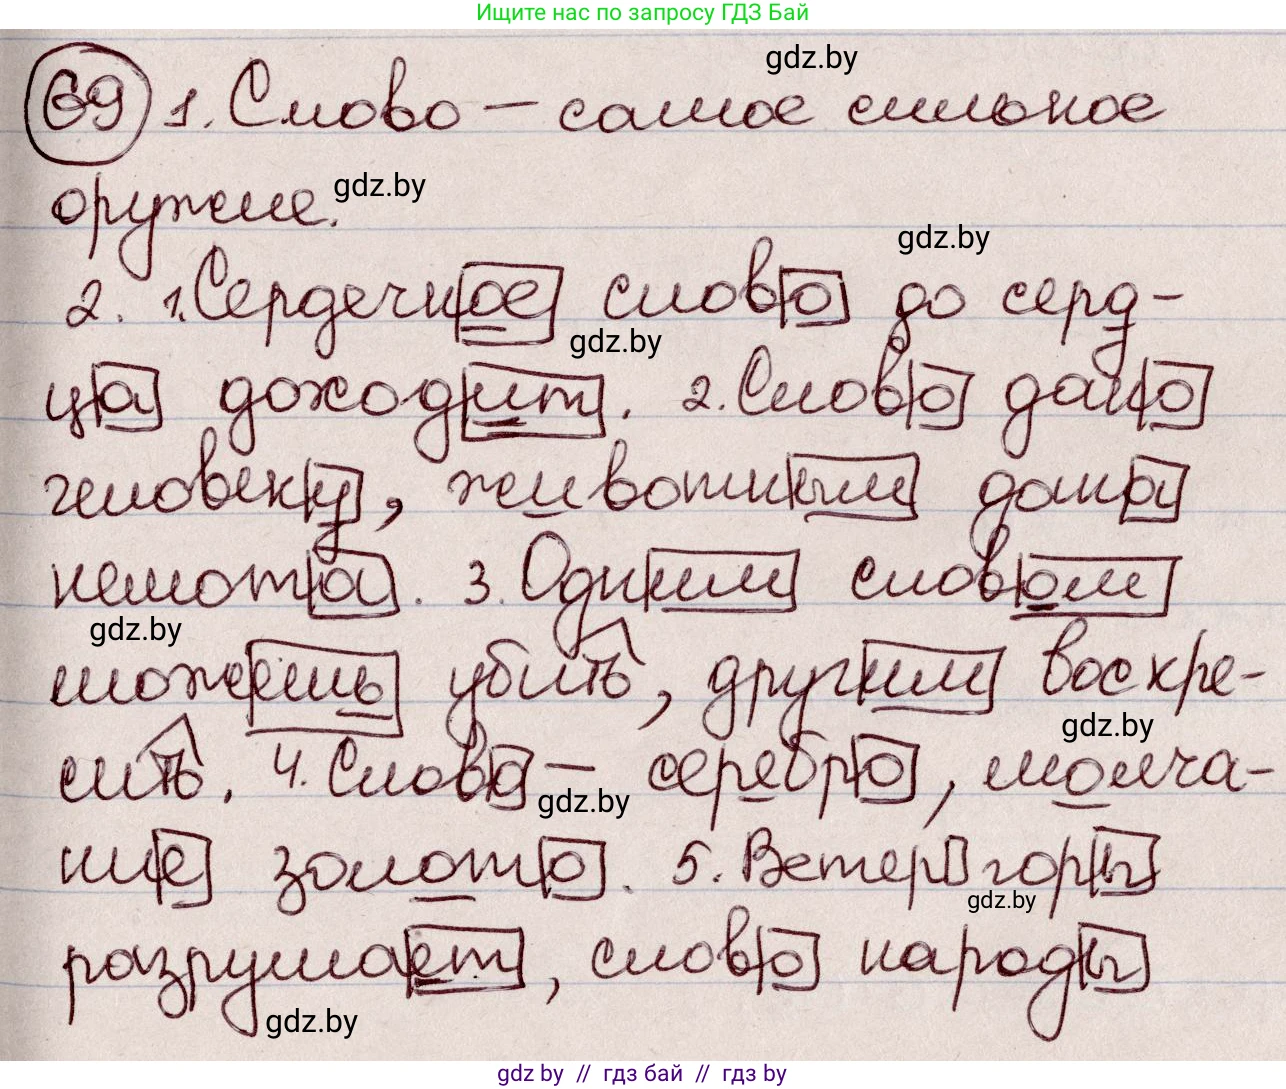 Ищите нас по запросу ГДЗ Бай
gdz.by
69 1. Слово – самое сильное
оружие. gdz.by
gdz.by
2. 1. Сердечное слово до серд-
gdz.by
ца доходит. 2. Слово дано
человеку, животным дана
немота. 3. Одним словом
gdz.by
можешь убить, другим воскре-
gdz.by
сить. 4. Слово – серебро, молча-
gdz.by
ние золото. 5. Ветер горы
gdz.by
разрушает, слово народы
gdz.by
gdz by // гдз бай // гдз by